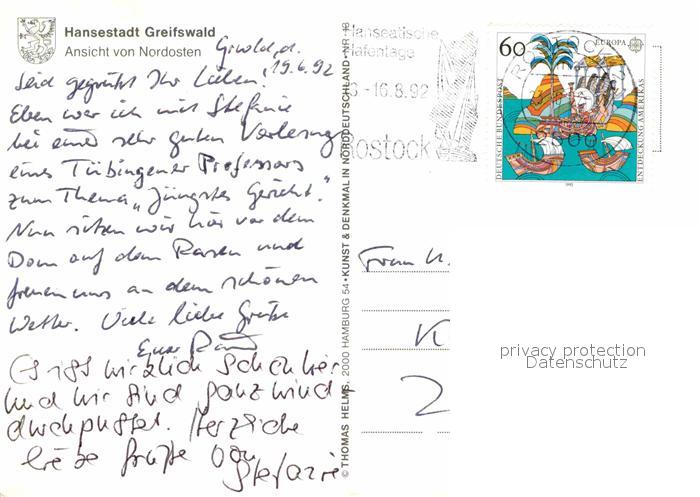 Hansestadt Greifswald
Ansicht von Nordosten
Grwald, d.
19.6.92
Seid gegrüßt Ihr Lieben,
Eben war ich mit Stefanie
bei einer sehr guten Vorlesung
eines Tübingener Professors
zum Thema „Jüngstes Gericht."
Nun sitzen wir hier vor dem
Dom auf dem Rasen und
freuen uns an dem schönen
Wetter. Viele liebe Grüße
Euer
Es ist wirklich schön hier
und wir sind ganz wind-
durchpustet. Herzliche
liebe Grüße von
Stefanie
© THOMAS HELMS, 2000 HAMBURG 54 • KUNST & DENKMAL IN NORDDEUTSCHLAND • NR. 18
Hanseatische
Hafentage
16.8.92
Rostock
60
EUROPA
DEUTSCHE BUNDESPOST
ENTDECKUNG AMERIKAS
1992
Frau
privacy protection
Datenschutz